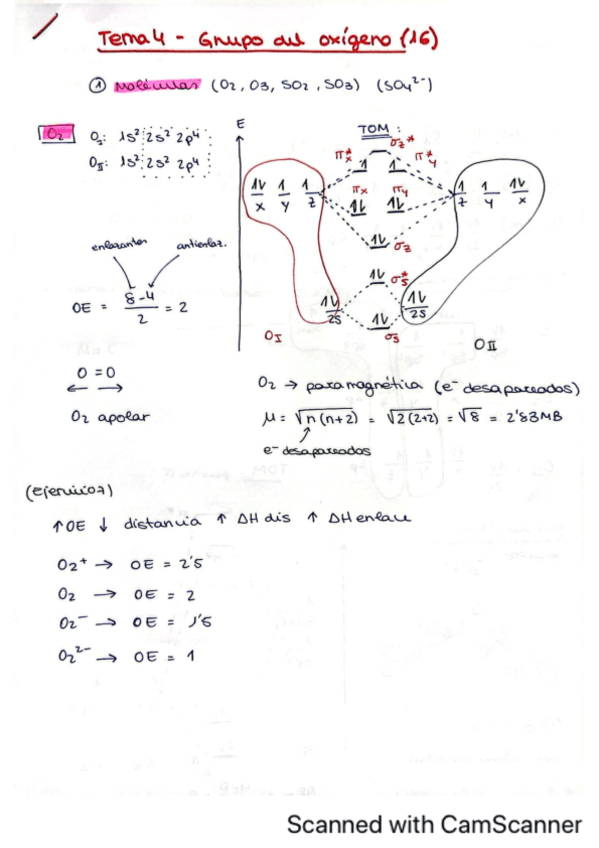 Tema 4 - Grupo del oxígeno (16)
① Moléculas (O2, O3, SO2, SO3) (SO4²⁻)
O2
OI: 1s² 2s² 2p⁴
OII: 1s² 2s² 2p⁴
E
TOM:
σz*
πx* πy*
1 1
1V 1 1
x y z
πx πy
1V 1V
1 1 1V
z y x
1V σz
1V σs*
1V
2s
1V
2s
1V
σs
OI
OII
enlazantes antienlaz.
OE = 8-4 / 2 = 2
O = O
← →
O2 apolar
O2 → paramagnética (e⁻ desapareados)
μ = √n(n+2) = √2(2+2) = √8 = 2'83MB
e⁻ desapareados
(ejercicio 7)
↑ OE ↓ distancia ↑ ΔH dis ↑ ΔH enlace
O2⁺ → OE = 2'5
O2 → OE = 2
O2⁻ → OE = 1'5
O2²⁻ → OE = 1
Scanned with CamScanner